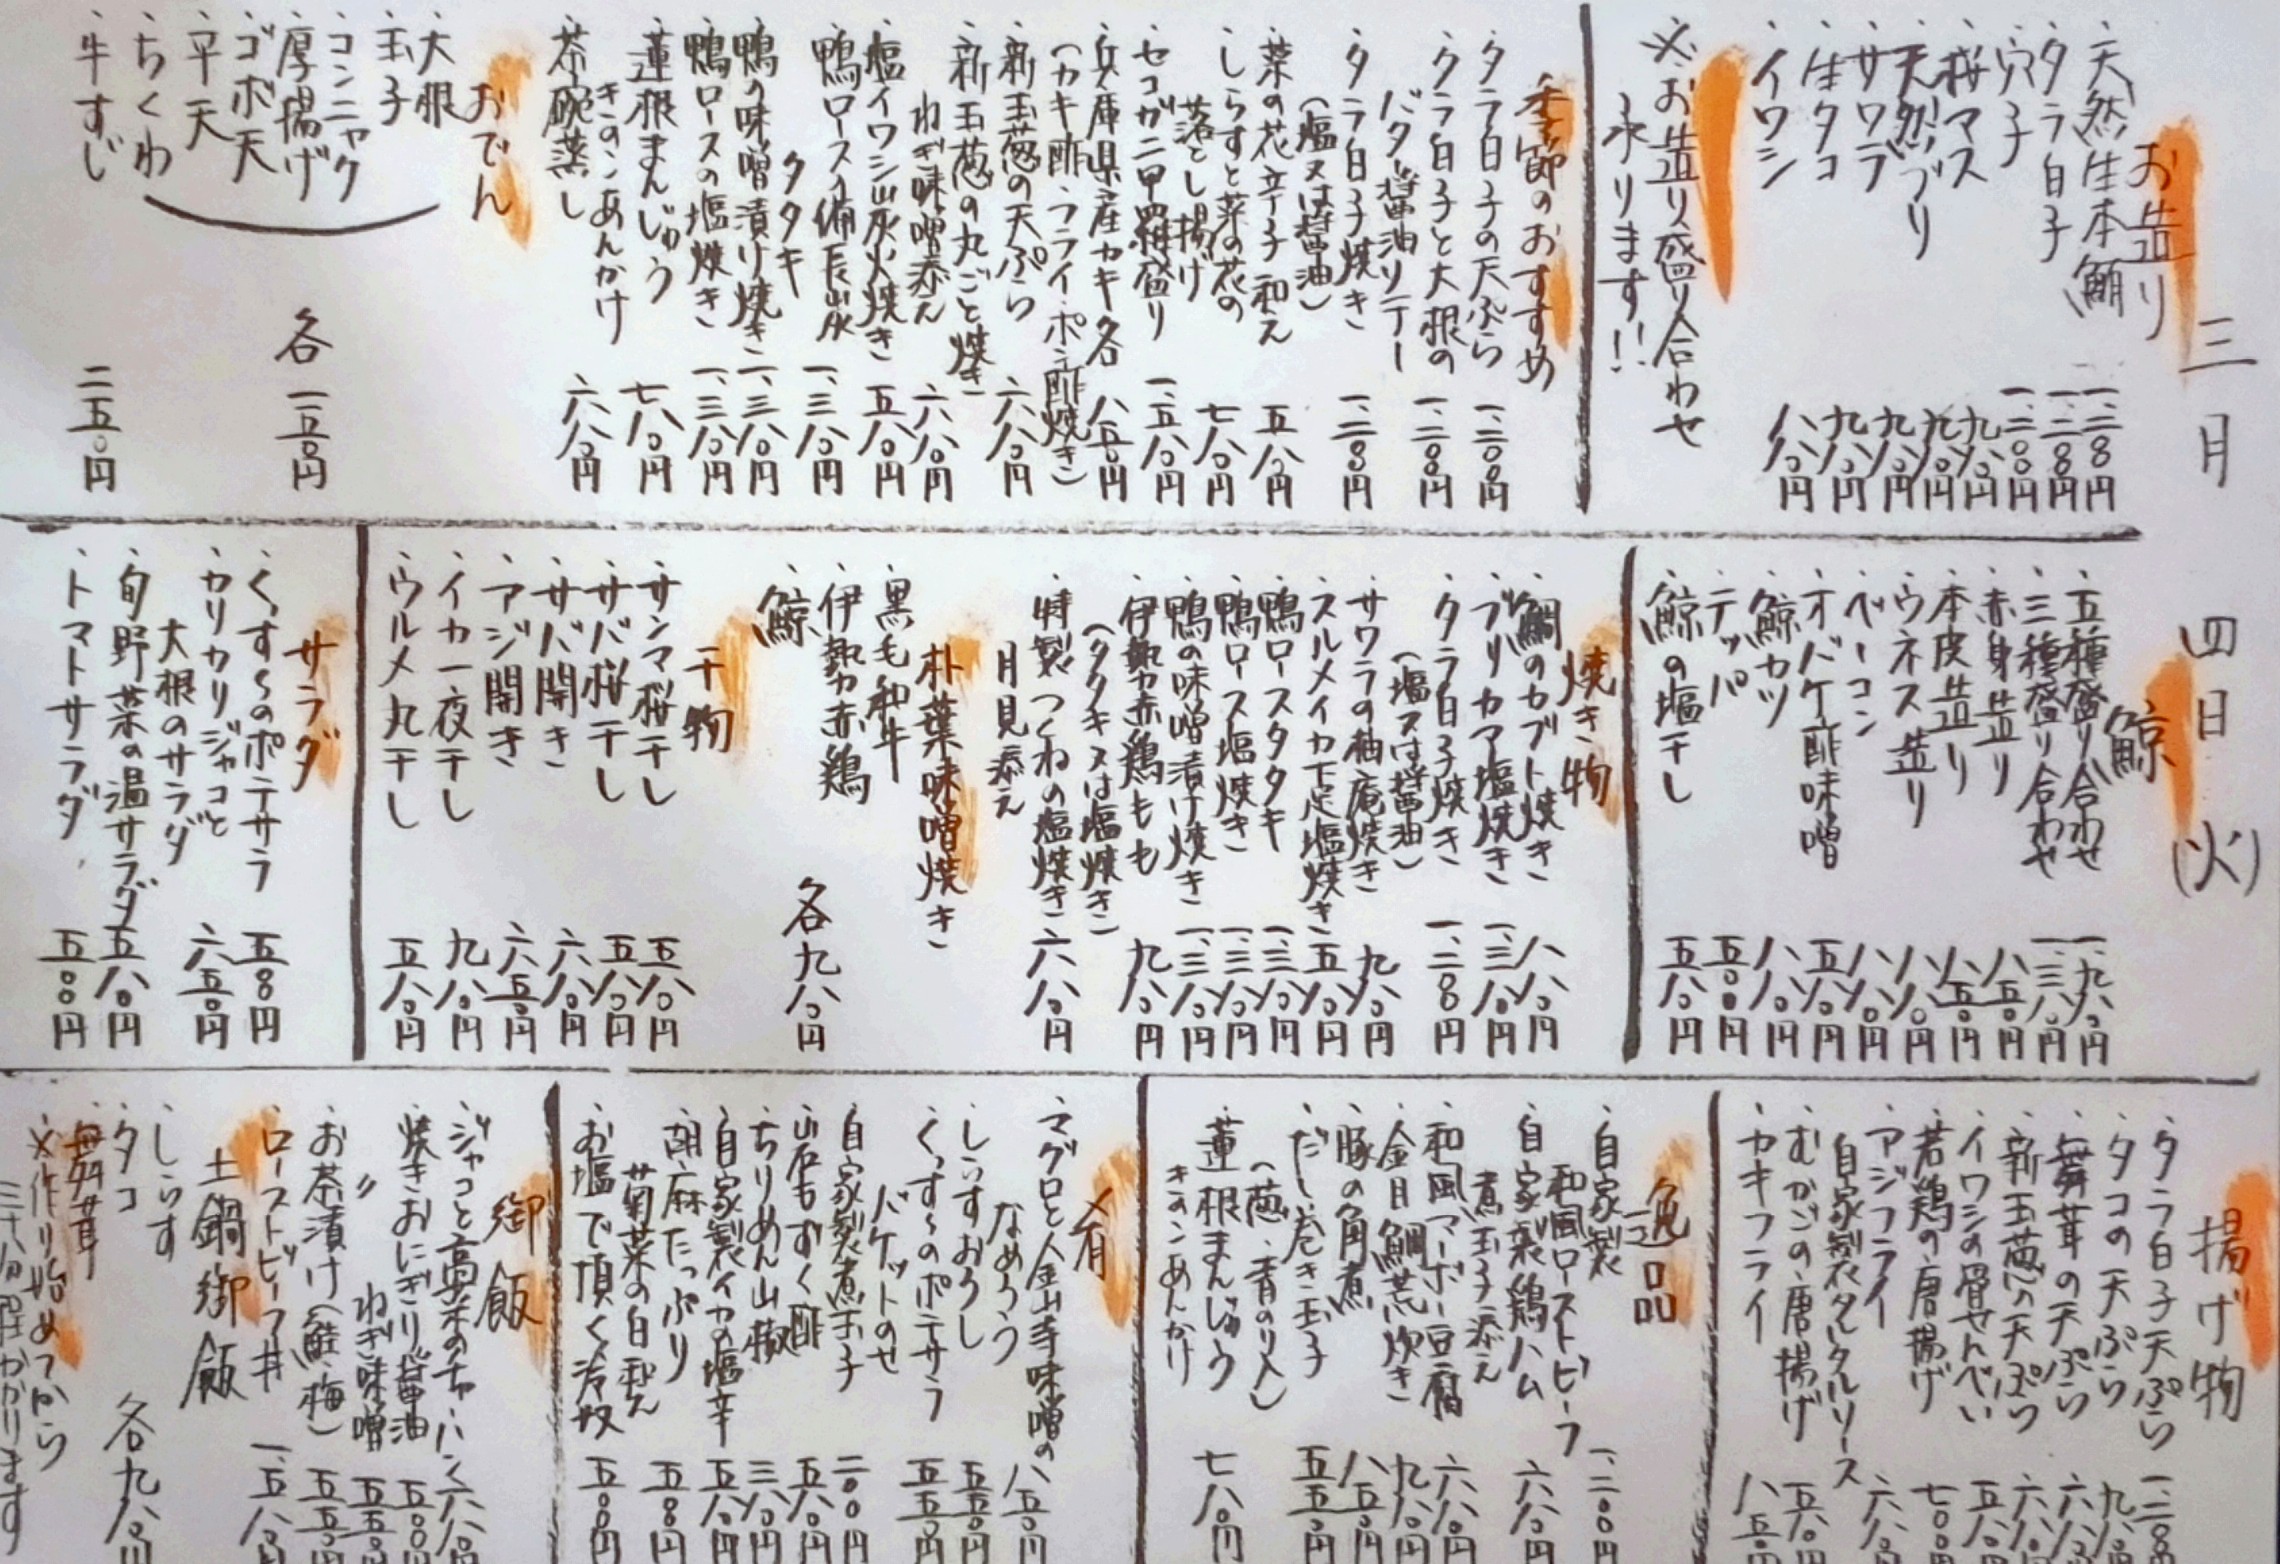 三月 四日 (火)
お造り
・天然生本鮪 一、二八〇円
・タラ白子 一、二八〇円
・穴子 一、二〇〇円
・桜マス 九八〇円
・天然ブリ 九八〇円
・サワラ 九八〇円
・生タコ 九八〇円
・イワシ 八八〇円
※お造り盛り合わせ
承ります!!
季節のおすすめ
・タラ白子の天ぷら 一、二〇〇円
・タラ白子と大根の
バター醤油ソテー 一、二〇〇円
・タラ白子焼き 一、二〇〇円
(塩又は醤油)
・菜の花辛子和え 五八〇円
・しらすと菜の花の
落とし揚げ 七八〇円
・セコガニ甲羅盛り 一、五八〇円
・兵庫県産カキ 各八五〇円
(カキ酢・フライ・ポン酢焼き)
・新玉葱の天ぷら 六八〇円
・新玉葱の丸ごと焼き
ねぎ味噌添え 六八〇円
・塩イワシ炭火焼き 五八〇円
・鴨ロース備長炭
タタキ 一、三八〇円
・鴨の味噌漬け焼き 一、三八〇円
・鴨ロースの塩焼き 一、三八〇円
・蓮根まんじゅう
きのこあんかけ 七八〇円
・茶碗蒸し 六八〇円
おでん
・大根
・玉子
・コンニャク
・厚揚げ
・ゴボ天
・平天
・ちくわ
各一五〇円
・牛すじ 二五〇円
鯨
・五種盛り合わせ 一、九八〇円
・三種盛り合わせ 一、三八〇円
・赤身造り 八五〇円
・本皮造り 八五〇円
・ウネス造り 八八〇円
・ベーコン 八八〇円
・オバケ酢味噌 五八〇円
・鯨カツ 八八〇円
・テッパ 五〇〇円
・鯨の塩干し 五八〇円
焼き物
・鯛のカブト焼き 八八〇円
・ブリカマ塩焼き 一、三八〇円
・タラ白子焼き 一、二〇〇円
(塩又は醤油)
・サワラの柚庵焼き 九八〇円
・スルメイカ下足塩焼き 五八〇円
・鴨ロースタタキ 一、三八〇円
・鴨ロース塩焼き 一、三八〇円
・鴨の味噌漬け焼き 一、三八〇円
・伊勢赤鶏もも 九八〇円
(タタキ又は塩焼き)
・特製つくねの塩焼き 六八〇円
月見添え
朴葉味噌焼き
・黒毛和牛
・伊勢赤鶏
・鯨
各九八〇円
干物
・サンマ桜干し 五八〇円
・サバ桜干し 五八〇円
・サバ開き 六八〇円
・アジ開き 六五〇円
・イカ一夜干し 九八〇円
・ウルメ丸干し 五八〇円
サラダ
・くすくすのポテサラ 五八〇円
・カリカリジャコと
大根のサラダ 六五〇円
・旬野菜の温サラダ 五八〇円
・トマトサラダ 五〇〇円
揚げ物
・タラ白子天ぷら 一、二〇
・タコの天ぷら 九八〇
・舞茸の天ぷら 六八〇
・新玉葱の天ぷら 六八〇
・イワシの骨せんべい 五八〇
・若鶏の唐揚げ 七〇〇
・アジフライ
自家製タルタルソース 六八〇
・むかごの唐揚げ 五八〇
・カキフライ 八五〇
逸品
・自家製
和風ローストビーフ 一、二〇〇円
・自家製鶏ハム
煮玉子添え 六八〇円
・和風マーボー豆腐 六八〇円
・金目鯛荒炊き 九八〇円
・豚の角煮 八五〇円
・だし巻き玉子 五五〇円
(葱・青のり入)
・蓮根まんじゅう
きのこあんかけ 七八〇円
肴
・マグロと金山寺味噌の
なめろう 八五〇円
・しらすおろし 五五〇円
・くすくすのポテサラ
バケットのせ 五五〇円
・自家製煮玉子 二〇〇円
・岩もずく酢 五八〇円
・ちりめん山椒 三八〇円
・自家製イカの塩辛 五八〇円
・胡麻たっぷり
菊菜の白和え 五八〇円
・お塩で頂く冷奴 五〇〇円
御飯
・ジャコと高菜のチャーハン 六八〇円
・焼きおにぎり醤油 五〇〇円
〃 ねぎ味噌 五五〇円
・お茶漬け(鮭・梅) 五五〇円
・ローストビーフ丼 一、五八〇円
土鍋御飯
・しらす
・タコ
・舞茸
各九八〇円
※作り始めてから
三十分程かかります